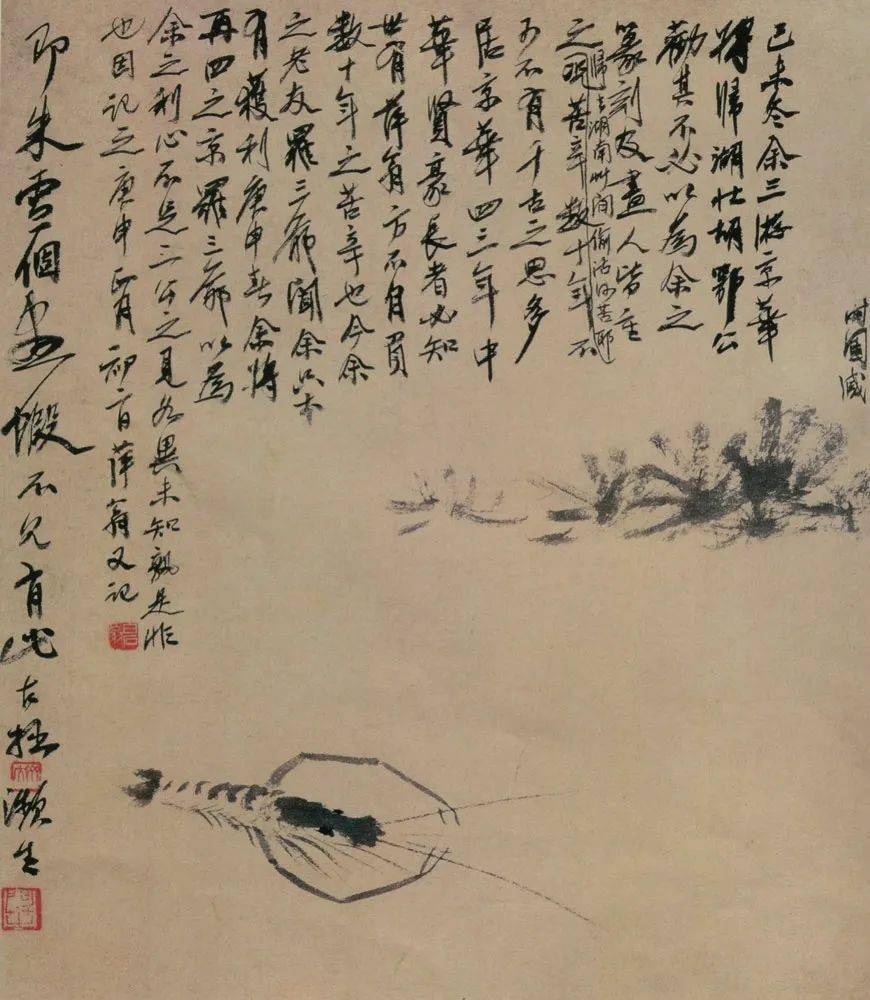 己未冬余三游京華
將歸湖北胡鄂公
勸其不必以為余之
篆刻及畫人皆重
之況苦辛數十年不
歸去湖南艸間偷活何苦耶
可不有千古之思多
居京華四三年中
華賢豪長者必知
世有萍翁方不自負
數十年之苦辛也今余
之老友羅三爺聞余只本
有獲利庚申春余將
再四之京羅三爺以為
余之利心不足三公之見各異未知孰是非
也因記之庚申正月初 日萍翁又記
即朱雪個畫蝦不見有此古拙 瀕生